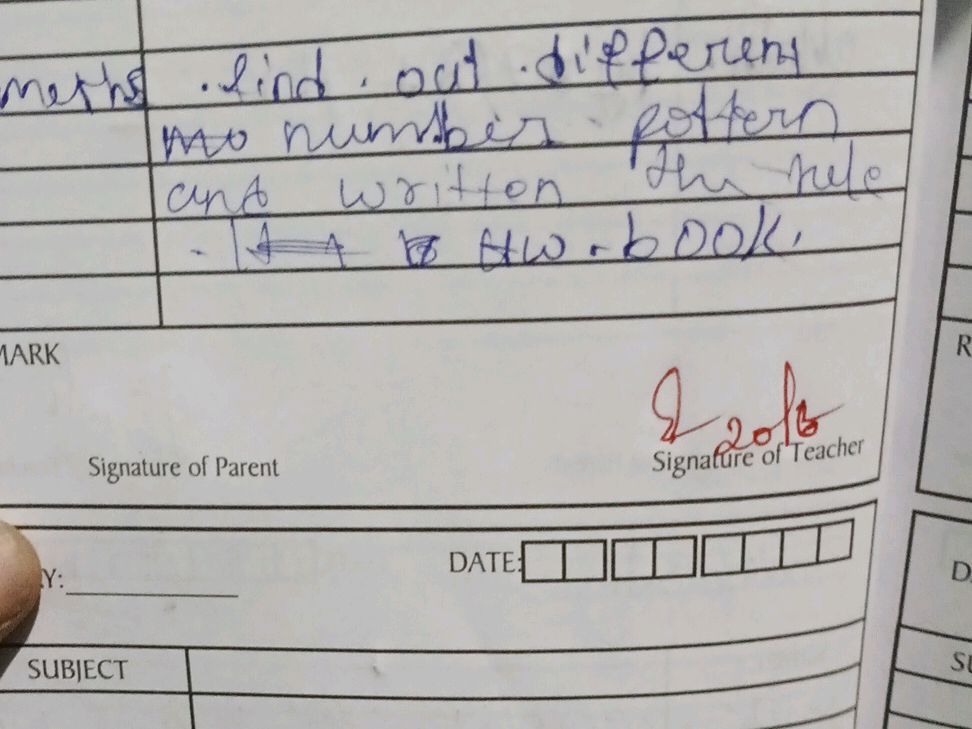 meths .find . out . different
number . pottern
and written the rule
. HW . book.
MARK
R
20/6
Signature of Parent
Signature of Teacher
Y:
DATE:
D
SUBJECT
SU